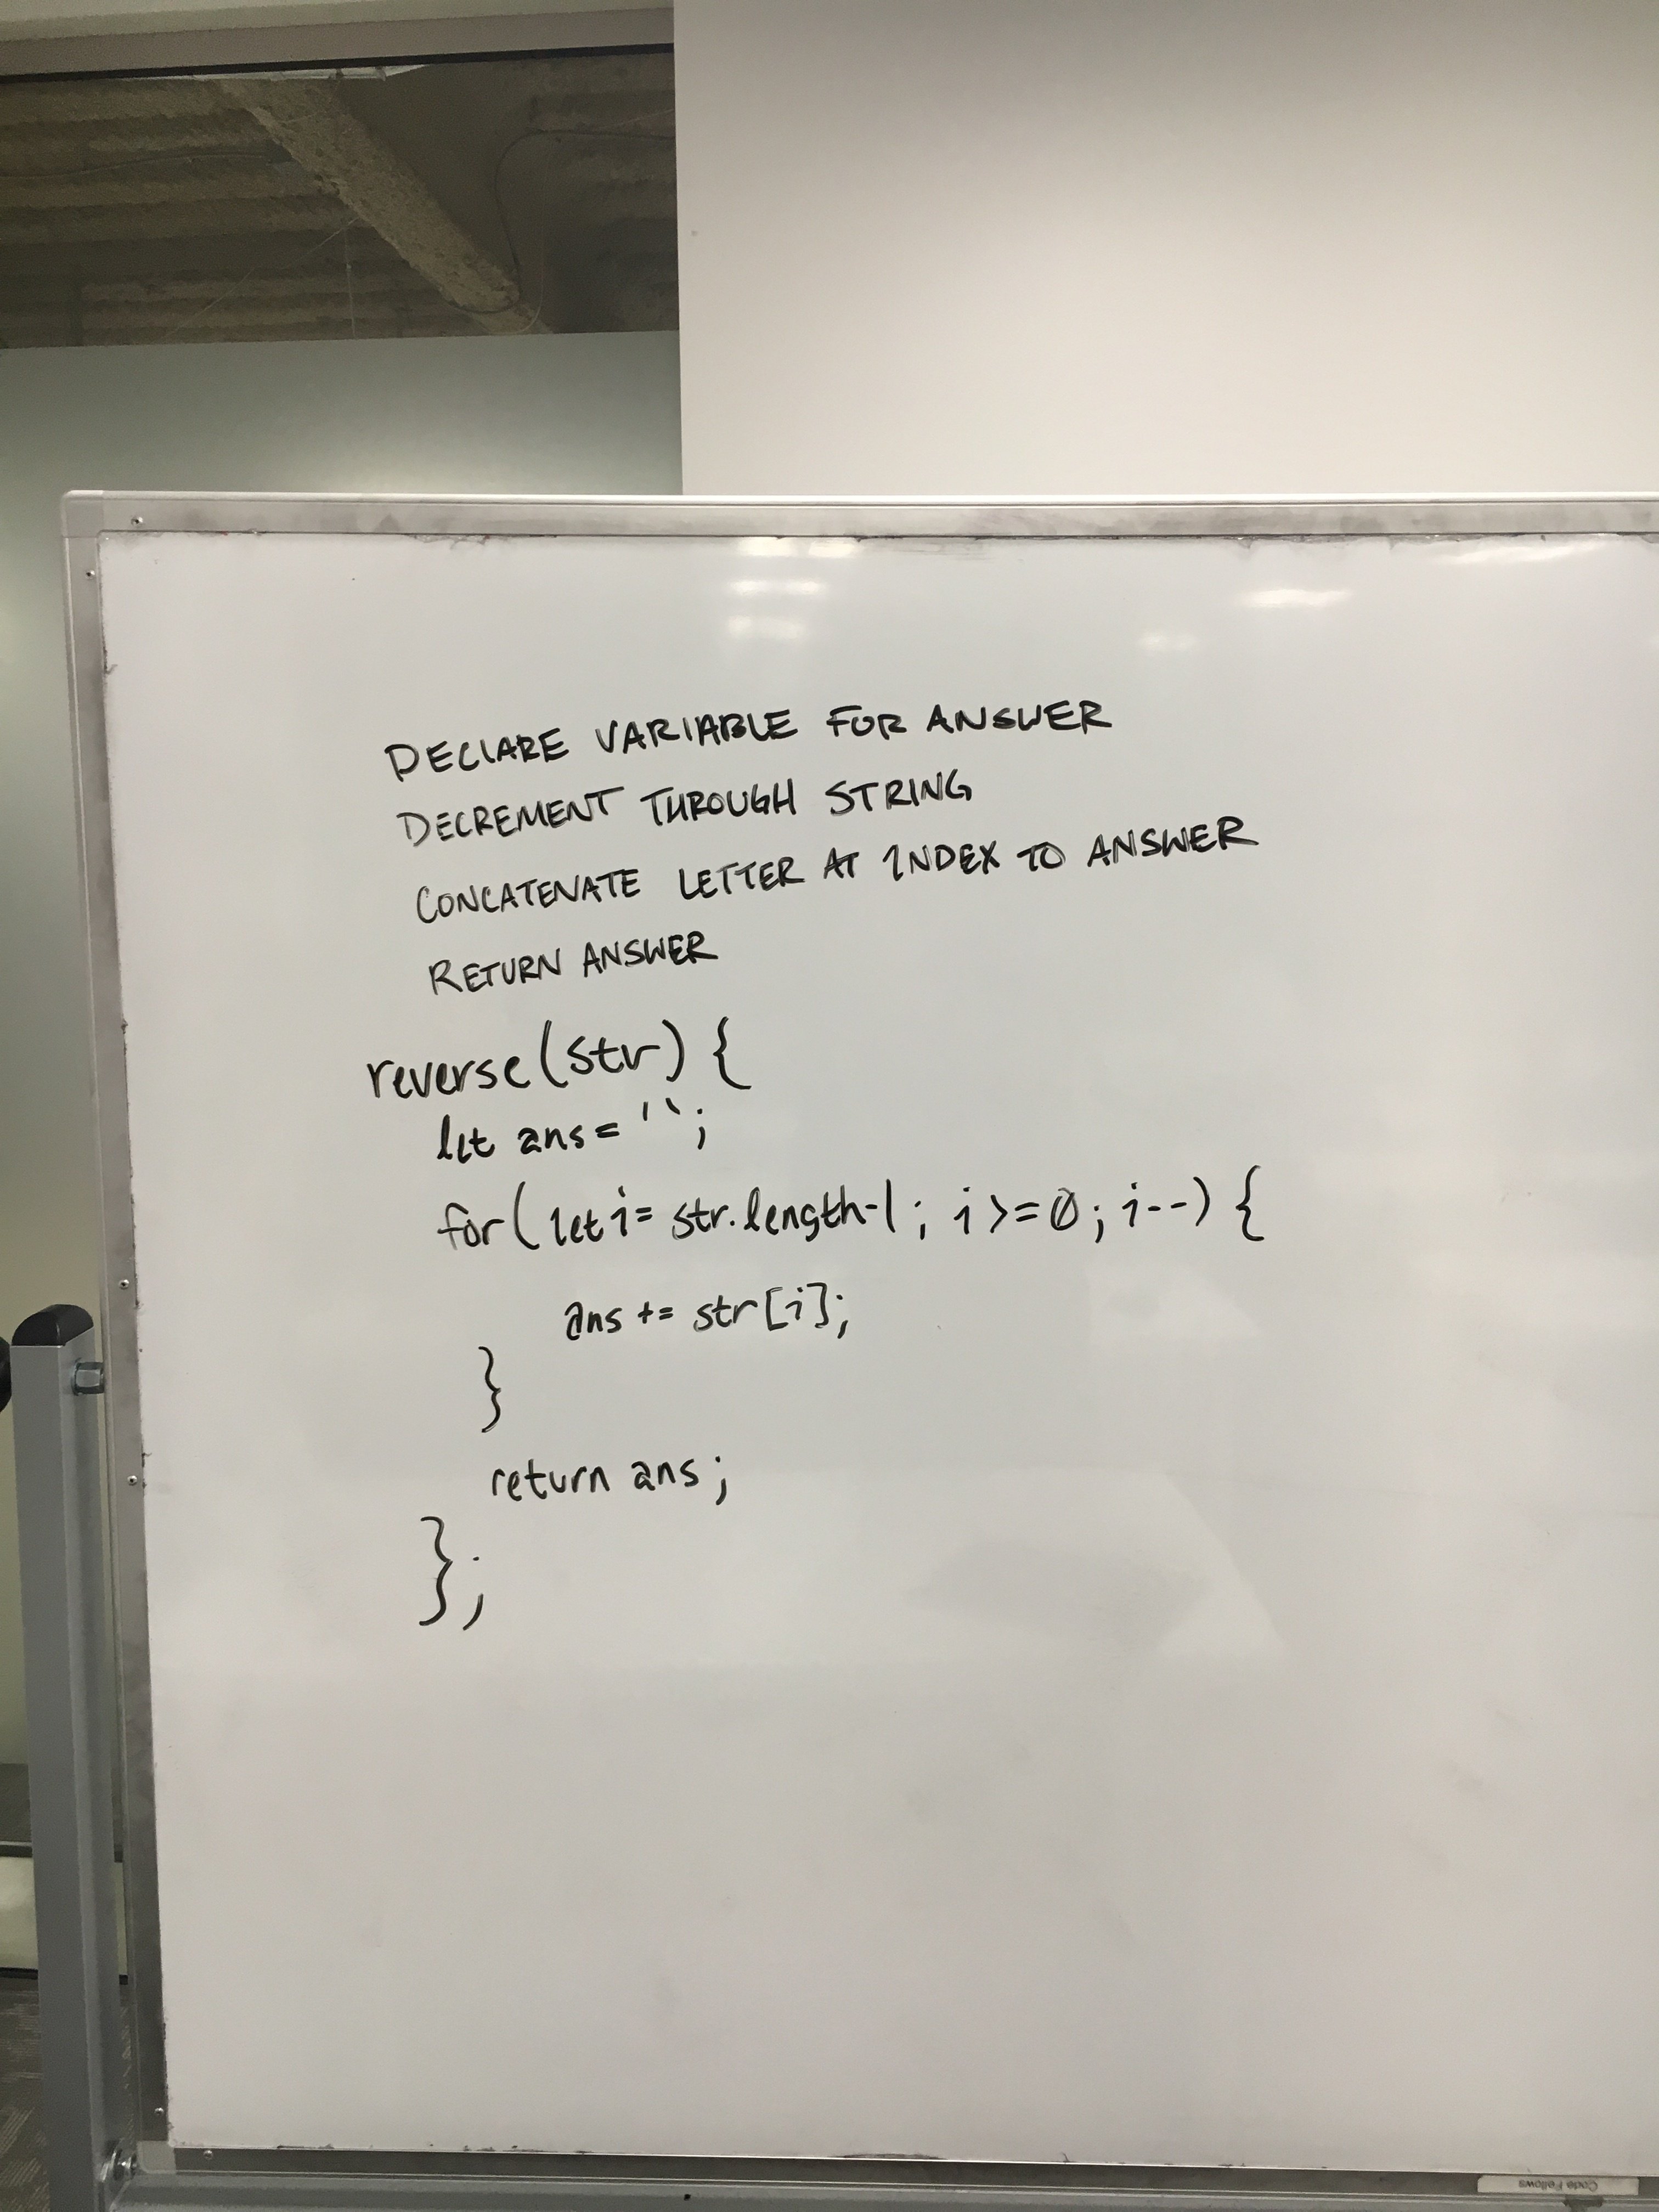 DECLARE VARIABLE FOR ANSWER
DECREMENT THROUGH STRING
CONCATENATE LETTER AT INDEX TO ANSWER
RETURN ANSWER
reverse(str) {
let ans = '';
for(let i= str.length-1; i >=0; i--) {
ans += str[i];
}
return ans;
};
Code Fellows